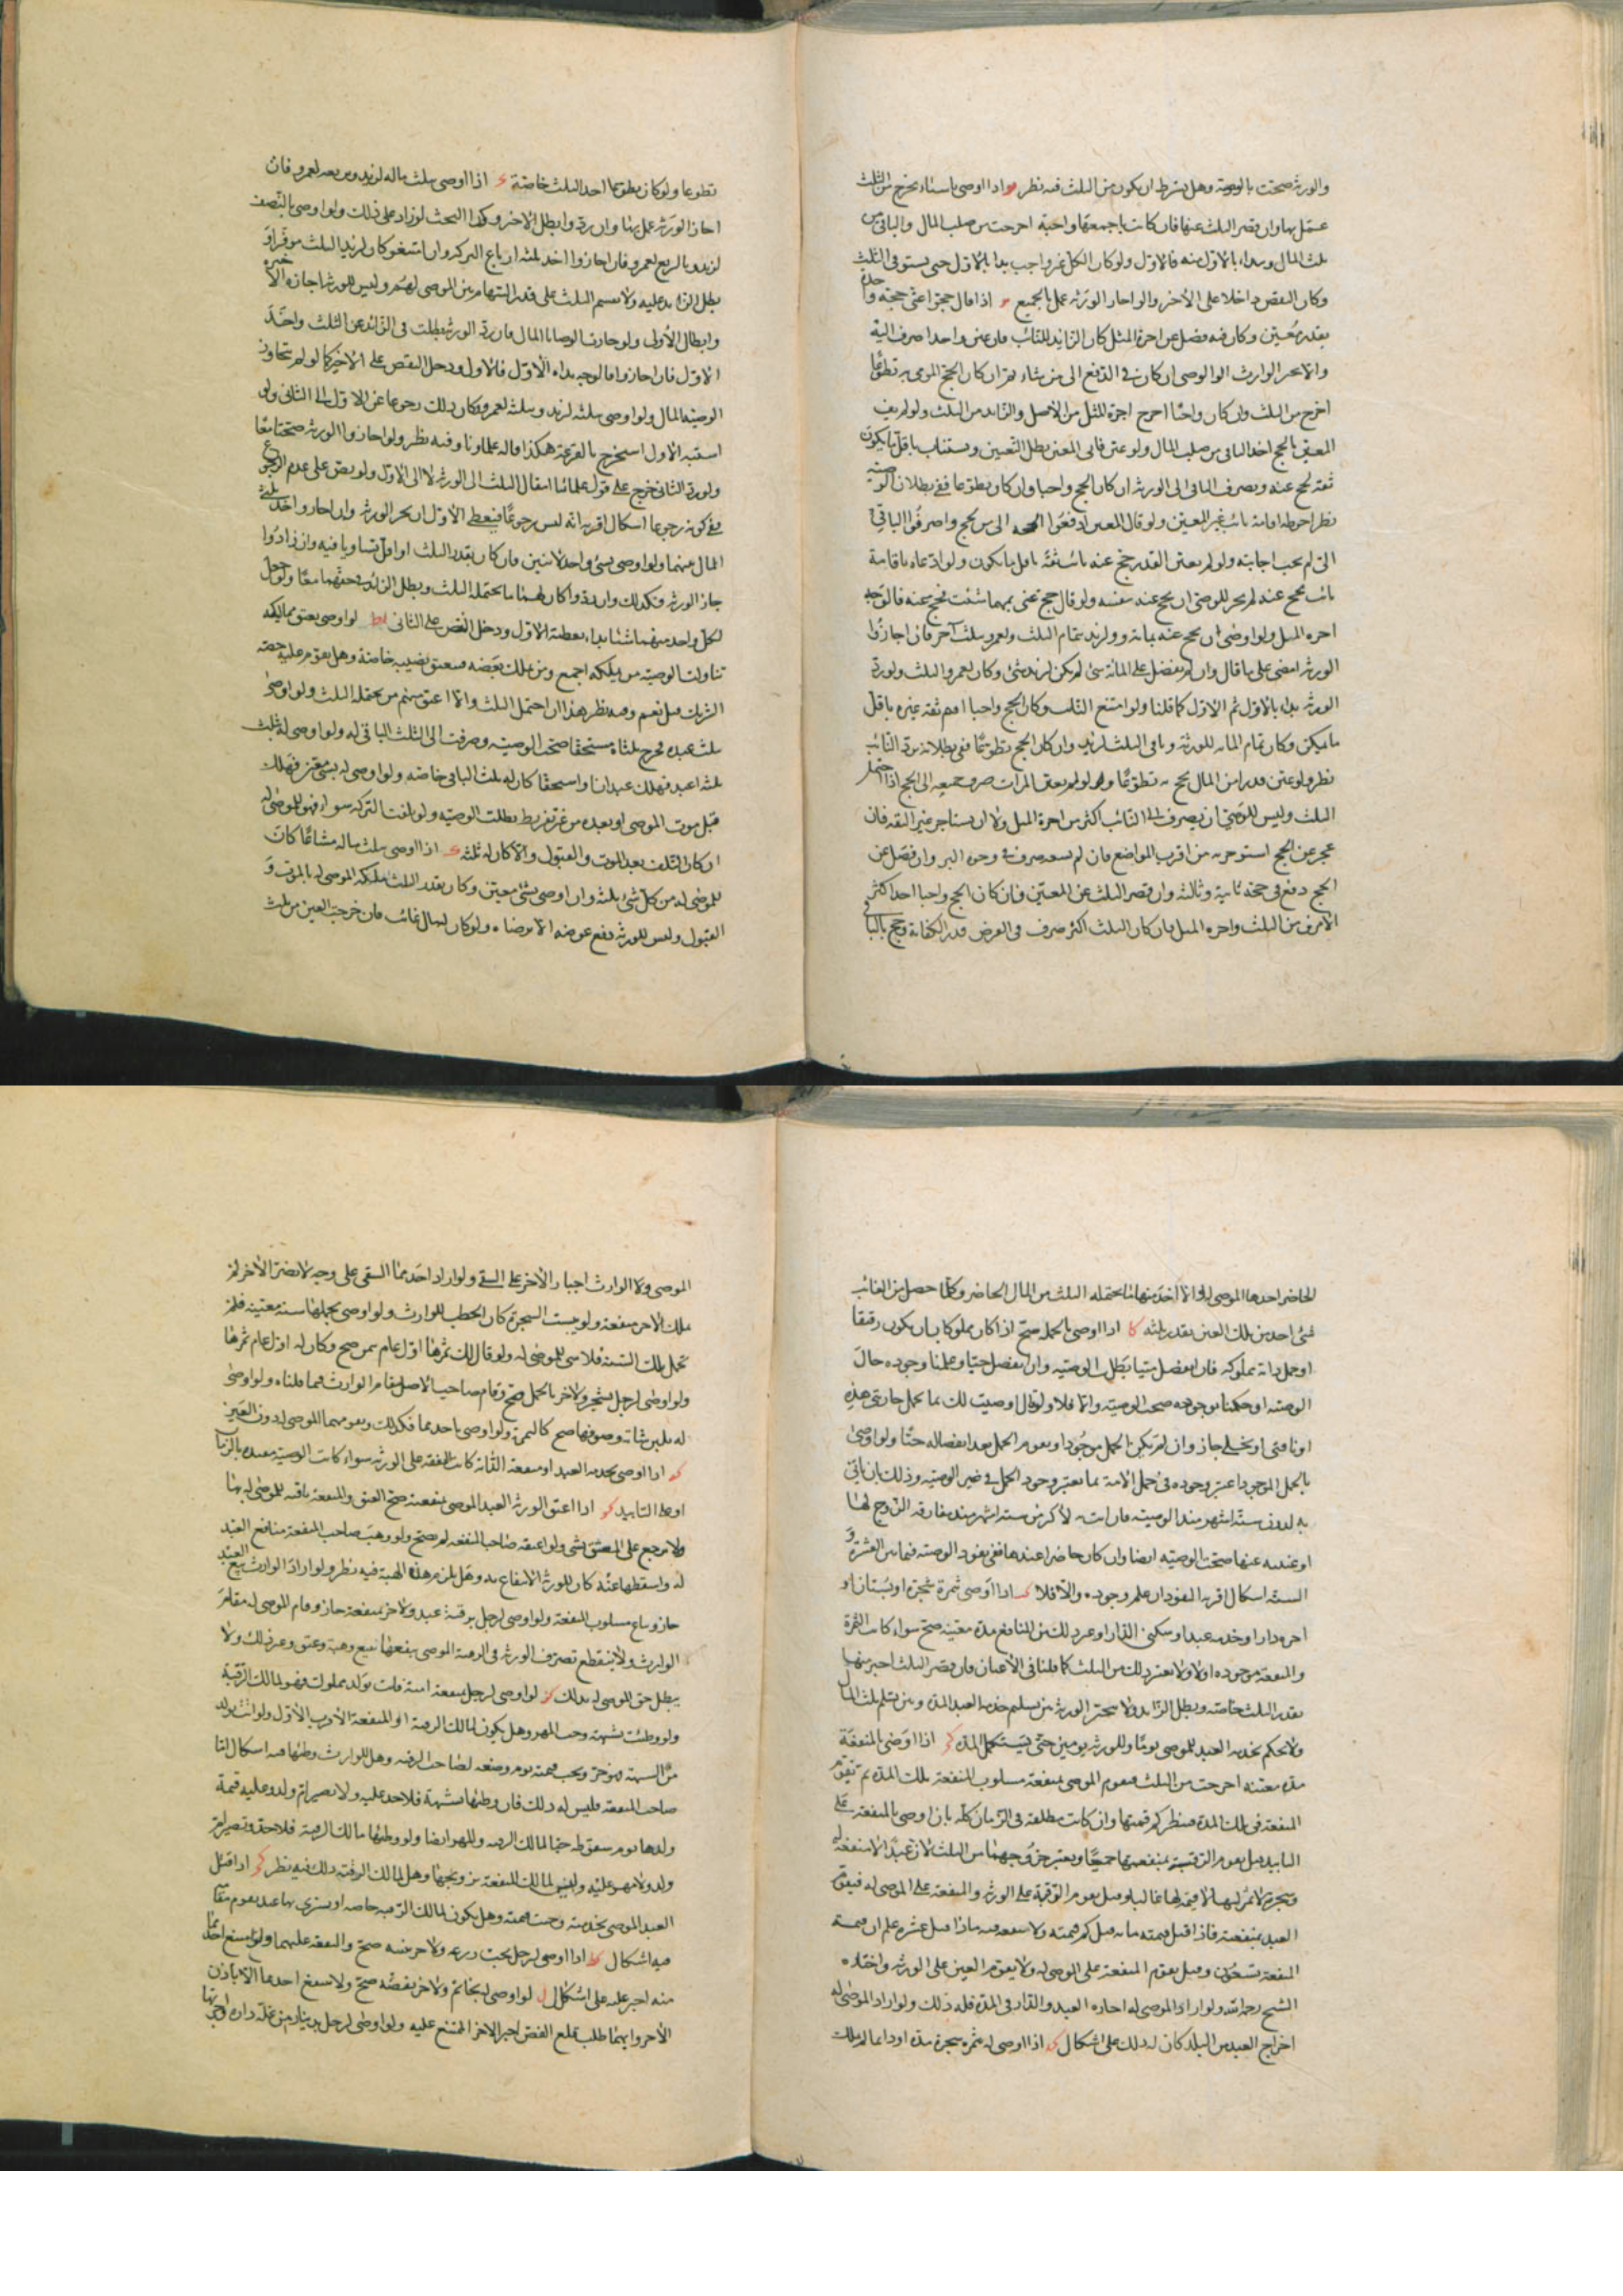 والورثة صحت بالوصية وهل يشترط ان يكون من الثلث فيه نظر يو اذا اوصى باشياء يخرج من الثلث
عمل بها وان قصر الثلث عنها فان كانت باجمعها واجبة اخرجت من صلب المال والباقى من
ثلث المال ويبداء بالاول منه فالاول ولو كان الكل غير واجب بدا بالاول حتى يستوفى الثلث
وكان النقص داخلا على الاخر والو اجاز الورثة عمل بالجميع اذا قال حجوا عنى حجة واحدة
بقدر معين وكان فيه فضل عن اجرة المثل كان الزايد للنائب فان عين واحدا صرف اليه
والا تخير الوارث او الوصى ان كان فى الدفع الى من شاء ثم ان كان الحج الموصى به تطوعا
اخرج من الثلث وان كان واجبا اخرج اجرة المثل من الاصل والزايد من الثلث ولو لم يف
المعين بالحج اخذ الباقى من صلب المال ولو عين فابى المعين بطل التعيين ويستناب باقل ما يكون
ثقة يحج عنه ويصرف الباقى الى الورثة ان كان الحج واجبا وان كان تطوعا ففى بطلان الوصية
نظر احوطه اقامة نائب غير المعين ولو قال المعين ادفعوا الحجة الى من يحج واصرفوا الباقى
الىّ لم يجب اجابته ولو لم يعين القدر حج عنه نائب ثقة باقل ما يكون ولو ادعاه باقامة
نائب يحج عنه لم يجز للوصى ان يحج عنه بنفسه ولو قال حج عنى بمهما شئت فحج عنه فالوجه
اجرة المثل ولو اوصى ان يحج عنه بمائة ولزيد بتمام الثلث ولعمرو بثلث آخر فان اجازوا
الورثة امضى على ما قال وان لم يفضل على المائة شئ لم يكن لزيد شئ وكان لعمرو الثلث ولو رد
الورثة بداء بالاول ثم الاول كما قلنا ولو امتنع النائب وكان الحج واجبا اقيم ثقة غيره باقل
ما يمكن وكان تمام المائة للورثة وباقى الثلث لزيد وان كان الحج تطوعا ففى بطلانه برد النائب
نظر ولو عين قدرا من المال يحج به تطوعا ولم يعين المرات صرف جميعه الى الحج اذا احتمل
الثلث وليس للوصى ان يصرف الى النائب اكثر من اجرة المثل ولا ان يستاجر غير الثقة فان
عجز عن الحج استوجر به من اقرب المواضع فان لم يسعه صرف فى وجوه البر وان فضل عن
الحج دفع فى حجة ثانية وثالثة وان قصر الثلث عن المعين فان كان الحج واجبا اخذ اكثر
الامرين من الثلث واجرة المثل فان كان الثلث اكثر صرف فى الفرض قدر الكفاية وحج بالباقى
تطوعا ولو كان تطوعا اخذ الثلث خاصة اذا اوصى بثلث ماله لزيد وبربعه لعمرو فان
اجاز الورثة عمل بهما وان ردوا بطل الاخر وكذا البحث لو زاد على ذلك ولو اوصى بالنصف
لزيد وبالربع لعمرو فان اجازوا اخذ ثلثة ارباع التركة وان امتنعوا كان لزيد الثلث موفرا و
بطل الزايد عليه ولا يقسم الثلث على قدر السهام بين الموصى لهم وليس للورثة اجازة الاخيرة
وابطال الاولى ولو جاوزت الوصايا المال فان رد الورثة بطلت فى الزائد عن الثلث واخذ
الاول فان اجازوا فالوجه بداءه الاول فالاول ودخل النقص على الاخير كما لو لم تجاوز
الوصية المال ولو اوصى بثلثه لزيد وبثلثه لعمرو كان ذلك رجوعا عن الاول الى الثانى ولو
اشتبه الاول استخرج بالقرعة هكذا قاله علماونا وفيه نظر ولو اجازوا الورثة صحتا معا
ولو رد الثانى خرج على قول علمائنا انتقال الثلث الى الورثة لا الى الاول ولو نص على عدم الرجوع
ففى كونه رجوعا اشكال اقربه انه ليس رجوعا فيعطى الاول ان لم يجز الورثة وان اجازوا اخذ ثلثى
المال منهما ولو اوصى بشئ واحد لاثنين فان كان بقدر الثلث او اقل تساويا فيه وان زاد و
جاز الورثة فكذلك وان ردوا كان لهما ما يحتمله الثلث ويطل الزائد فى حقهما معا ولو جعل
لكل واحد منهما شيئا بداء بعطية الاول ودخل النقص على الثانى يط لو اوصى بعتق مماليكه
تناولت الوصية من يملكه اجمع ومن يملك بعضه فيعتق نصيبه خاصة وهل يقوم عليه حصة
الشريك قيل نعم وفيه نظر هذا ان احتمل الثلث والا اعتق منهم من يحتمله الثلث ولو اوصى
بثلث عبده فخرج ثلثاه مستحقا صحت الوصية وصرفت الى الثلث الباقى له ولو اوصى له بثلث
ثلثة اعبد فهلك عبدان او استحقا كان له ثلث الباقى خاصة ولو اوصى له بشئ معين فهلك
قبل موت الموصى او بعده من غير تفريط بطلت الوصية ولو تلفت التركة سواه فهو للموصى له
ان كان التلف بعد الموت والقبول والا كان له ثلثه ك اذا اوصى بثلث ماله مشاعا كان
للموصى له من كل شئ ثلثه وان اوصى بشئ معين وكان بقدر الثلث ملكه الموصى له بالموت و
القبول وليس للورثة دفع عوضه الا برضاه ولو كان المال غائب فان خرجت العين من ثلث
الحاضر اخذها الموصى له والا اخذ منها ما يحتمله الثلث من المال الحاضر وكلما حصل من الغائب
شئ اخذ من تلك العين بقدر ثلثه كا اذا اوصى بالحمل صح اذا كان مملوكا بان يكون رقيقا
او حمل دابة مملوكة فان انفصل ميتا بطل الوصية وان انفصل حيا وعلمنا وجوده حال
الوصية او حكمنا بوجوده صحت الوصية والا فلا ولو قال اوصيت لك بما تحمل جاريتى هذه
او ناقتى او نخلتى جاز وان لم يكن الحمل موجودا ويقوم الحمل بعد انفصاله حيا ولو اوصى
بالحمل الموجود اعتبر وجوده فى حمل الامة بما يعتبر وجود الحمل فى ضمن الوصية وذلك بان ياتى
به لدون ستة اشهر منذ الوصية فان اتت لاكثر من ستة اشهر منذ مفارقة الزوج لها
او غيبه عنها صحت الوصية ايضا وان كان حاضرا عندها ففى نفوذ الوصية فيما بين العشرة و
الستة اشكال اقربه النفوذ ان علم وجوده والا فلا اذا اوصى ثمرة شجرة او بستان او
اجرة دار او خدمة عبد او سكنى الدار او غير ذلك من المنافع مدة معينة صح سواء كانت الثمرة
والمنفعة موجودة اولا ولا يعتبر ذلك من الثلث كما قلنا فى الاعيان فان قصر الثلث اجيز منها
بقدر الثلث خاصة ويبطل الزايد ولا يتخير الورثة بين تسليم خدمة العبد المدة وبين تسليم ثلث المال
ولا يحكم بخدمة العبد للموصى يوما وللورثة يومين حتى يستكمل المدة اذا اوصى بالمنفعة
مدة معينة اخرجت من الثلث فيقوم الموصى بمنفعته مسلوب المنفعة تلك المدة ثم تقوم
المنفعة فى تلك المدة فينظر كم قيمتها وان كانت مطلقة فى الزمان كله بان اوصى بالمنفعة على
التابيد قيل يقوم الرقبة بمنفعتها جميعا ويعتبر خروجهما من الثلث لان عبدا لا منفعة له
وشجرة لا ثمر لها لا قيمة لها غالبا وقيل يقوم الرقبة على الورثة والمنفعة على الموصى له فيقوم
العبد بمنفعته فاذا قيل قيمته مائة قيل كم قيمته ولا منفعة فيه فاذا قيل عشرة علم ان قيمة
المنفعة تسعون وقيل يقوم المنفعة على الموصى له ولا يقوم العين على الورثة واختاره
الشيخ رحمه الله ولو اراد الموصى له اجارة العبد والدار فى المدة فله ذلك ولو اراد الموصى له
اخراج العبد من البلد كان له ذلك على اشكال اذا اوصى له بثمرة شجرة مدة او دائما لم يملك
الموصى ولا الوارث اجبار الاخر على السقى ولو اراد احدهما السقى على وجه لا يضر الاخر لم
يملك الاخر منفعته ولو يبست الشجرة كان الحطب للوارث ولو اوصى بحملها سنة معينة فلم
تحمل تلك السنة فلا شئ للموصى له ولو قال لك ثمرها اول عام يثمر صح وكان له اول عام ثمرها
ولو اوصى لرجل بشجر ولاخر بالحمل صح وقام صاحب الاصل مقام الوارث فيما قلناه ولو اوصى
له بلبن شاته وصوفها صح كالثمرة ولو اوصى باحدهما فكذلك ويقومهما للموصى له دون العين
كه اذا اوصى بخدمة العبد او منفعة الدابة كانت النفقة على الورثة سواء كانت الوصية مقيدة بالزمان
او على التابيد كو اذا اعتق الورثة العبد الموصى بمنفعته صح العتق والمنفعة باقية للموصى له بها
ولا يرجع على المعتق بشئ ولو اعتقه صاحب المنفعة لم يصح ولو وهب صاحب المنفعة منافع العبد
له واسقطها عنه كان للورثة الانتفاع به وهل يلزم هذه الهبة فيه نظر ولو اراد الوارث بيع العبد
جاز ويباع مسلوب المنفعة ولو اوصى لرجل برقبة عبد ولاخر بمنفعته جاز وقام الموصى له مقام
الوارث ولا ينقطع تصرف الورثة فى الرقبة الموصى بنفعها ببيع وهبة وعتق وغير ذلك ولا
يبطل حق الموصى له بذلك كز لو اوصى لرجل بمنفعة امته فاتت بولد مملوك فهو لمالك الرقبة
ولو وطئت بشبهة وجب المهر وهل يكون لمالك الرقبة او المنفعة الاقرب الاول ولو اتت بولد
من الشبهة فهو حر ويجب قيمته يوم وضعه لصاحب الرقبة وهل للوارث وطئها فيه اشكال اما
صاحب المنفعة فليس له ذلك فان وطئها بشبهة فلا حد عليه ولا تصير ام ولد وعليه قيمة
ولدها يوم سقوطه حيا لمالك الرقبة والمهر ايضا ولو وطئها مالك الرقبة فلا حد وتصير ام
ولد ولا مهر عليه وليس لمالك المنفعة تزويجها وهل لمالك الرقبة ذلك فيه نظر كح اذا قتل
العبد الموصى بخدمته وجبت قيمته وهل يكون لمالك الرقبة خاصة او يشترى بها عبد يقوم مقامه
فيه اشكال كط اذا اوصى لرجل بحب زرعه ولاخر بتبنه صح والنفقة عليهما ولو امتنع احدهما
منه اجبر عليه على اشكال ل لو اوصى له بخاتم ولاخر بفصه صح ولا ينتفع احدهما الا باذن
الاخر وايهما طلب قلع الفص اجبر الاخر الممتنع عليه ولو اوصى لرجل بدينار من غلة داره واجرتها